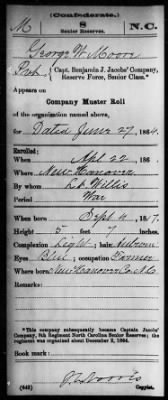 (Confederate.)
M 8 N.C.
Senior Reserves.
George W. Moore
Pvt., Capt. Benjamin J Jacobs' Company,
Reserve Force, Senior Class.*
Appears on
Company Muster Roll
of the organization named above,
for Dated June 27, 186
Enrolled:
When Apl 22, 186
Where New Hanover
By whom Willis
Period War
When born Sept 4, 181
Height 5 feet 7 inches.
Complexion Light; hair Auburn
Eyes Blue; occupation Farmer
Where born New Hanover Co N.C.
Remarks:
*This company subsequently became Captain Jacobs'
Company, 8th Regiment North Carolina Senior Reserves; the
regiment was organized about December 2, 1864.
Book mark:
(642) Copyist.